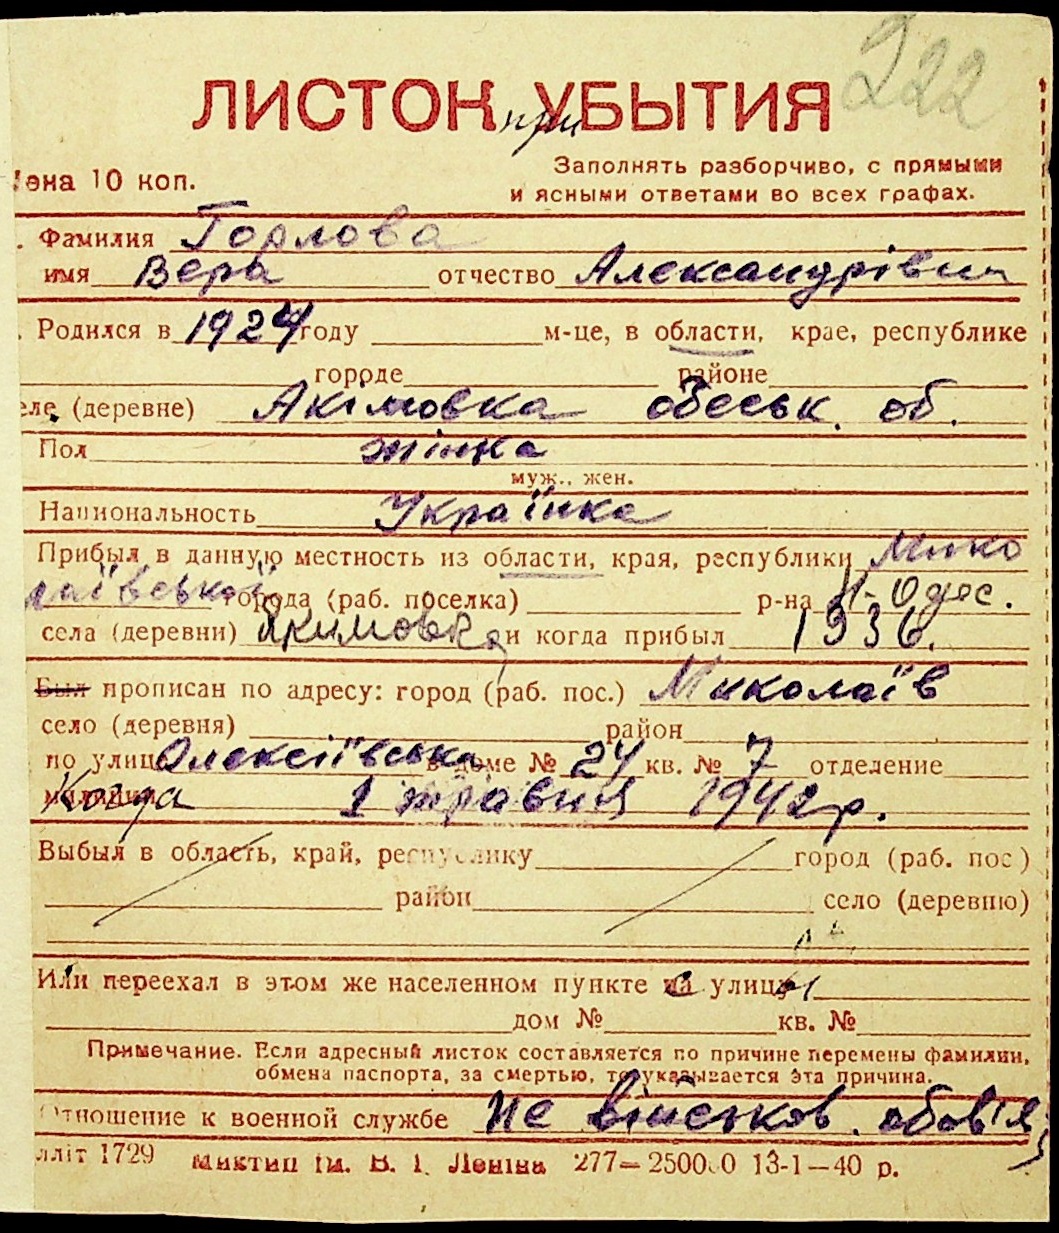 222
ЛИСТОК при УБЫТИЯ
Цена 10 коп. Заполнять разборчиво, с прямыми
и ясными ответами во всех графах.
Фамилия Горлова
имя Вера отчество Александрівна
Родился в 1924 году м-це, в области, крае, республике
городе районе
селе (деревне) Акімовка одеськ. об.
Пол жінка
муж., жен.
Национальность Українка
Прибыл в данную местность из области, края, республики Мико
лаївської города (раб. поселка) р-на Н-Одес.
села (деревни) Якимовка и когда прибыл 1936.
Был прописан по адресу: город (раб. пос.) Миколаїв
село (деревня) район
по улице Олексіївська в доме № 24 кв. № 7 отделение
милиции Когда 1 травня 1942р.
Выбыл в область, край, республику город (раб. пос)
район село (деревню)
Или переехал в этом же населенном пункте с улицы
дом № кв. №
Примечание. Если адресный листок составляется по причине перемены фамилии,
обмена паспорта, за смертью, то указывается эта причина.
Отношение к военной службе не військов. обов'яз
лліт 1729 Миктип ім. В. І. Леніна 277—250000 13-1—40 р.